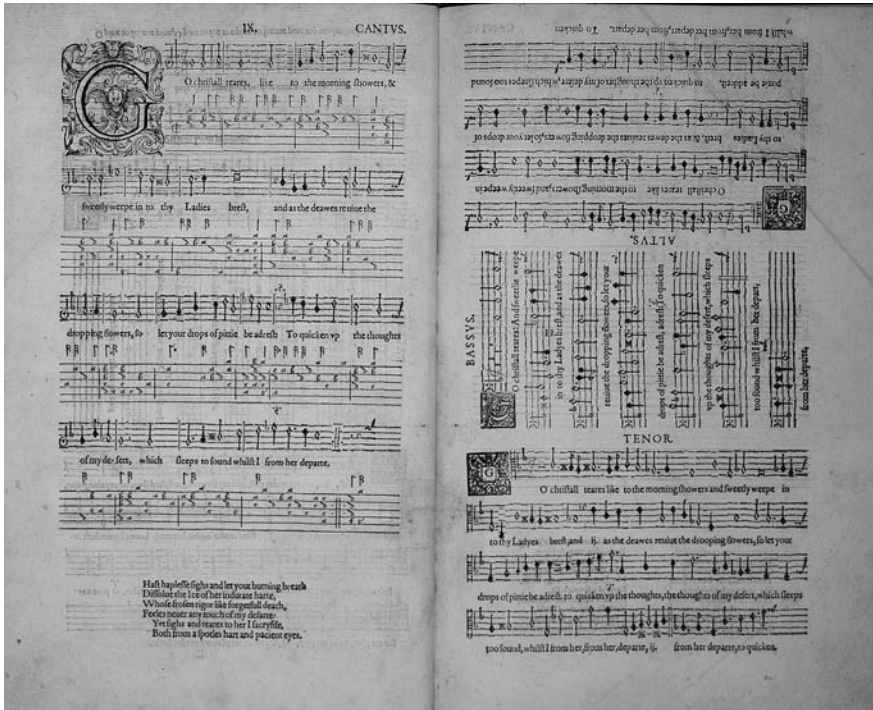 IX. CANTVS.
G
O christall teares, like to the morning showers, &
sweetly weepe in to thy Ladies brest, and as the deawes reuiue the
dropping flowers, so let your drops of pittie be adrest: To quicken vp the thoughts
of my de- sert, which sleeps to sound whilst I from her departe.
Hast haplesse sighs and let your burning breath
Dissolue the Ice of her indurate harte,
Whose frosen rigor like forgetfull death,
Feeles neuer any touch of my desarte:
Yet sighs and teares to her I sacryfise,
Both from a spotles hart and pacient eyes.
ALTVS.
G
O christall teares like to the morning showers, and sweetly weepe in
to thy Ladies brest, & as the dewes reuiues the dropping flowers, so let your drops of
pittie be adrest, to quicken vp the thoughts of my desert, which sleepes too sound
whilst I from her, from her depart, from her depart. To quicken
BASSVS.
O christall teares: And sweetlie weepe
in to thy Ladyes brest, and as the deawes
reuiue the dropping flowers, so let your
drops of pittie be adrest, adrest, To quicken
vp the thoughts of my desert, which sleeps
too sound whilst I from her depart,
from her departe,
TENOR.
G
O christall teares like to the morning showers and sweetly weepe in
to thy Ladyes brest, and ij. as the deawes reuiue the drooping flowers, so let your
drops of pittie be adrest to quicken vp the thoughts, the thoughts of my desert, which sleeps
too sound, whilst I from her, from her, departe, ij. from her departe, to quicken.